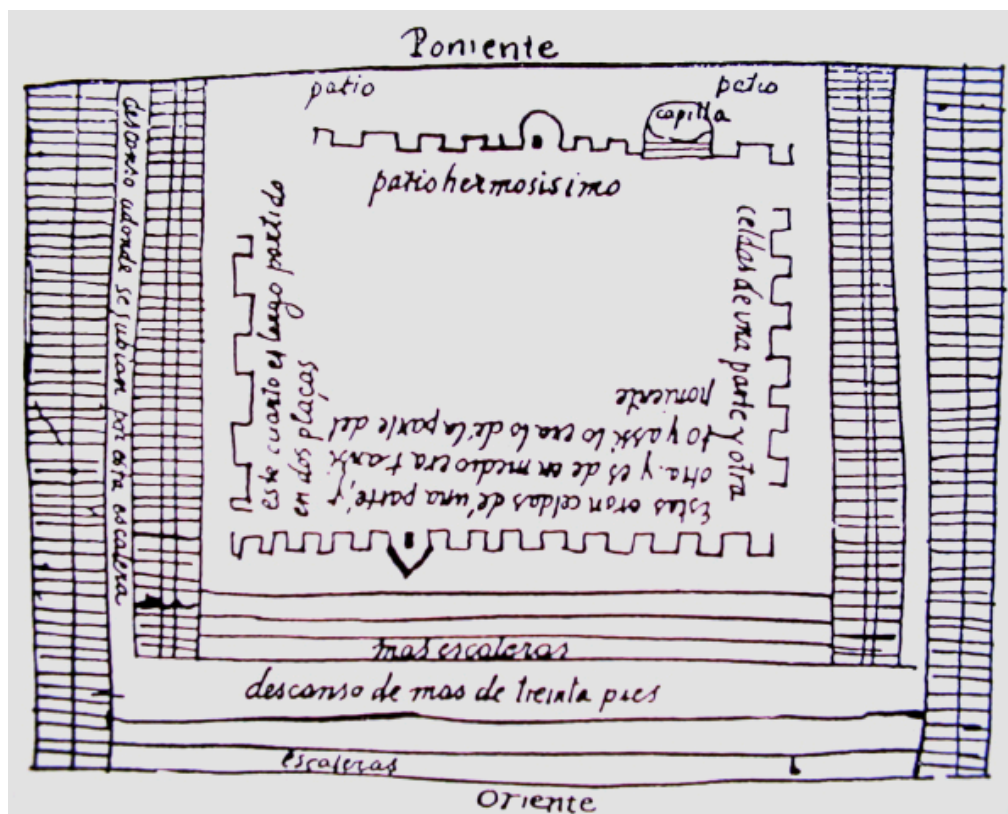 Poniente
patio
patio
capilla
patio hermosisimo
descanso adonde se subian por esta escalera
este cuarto es largo partido
en dos plaças
celdas de una parte y otra
Estas eron celdas de una parte, y
otra. y es de en medio era transi
to y assi lo era lo de la parte del
poniente
mas escaleras
descanso de mas de treinta pies
escaleras
Oriente